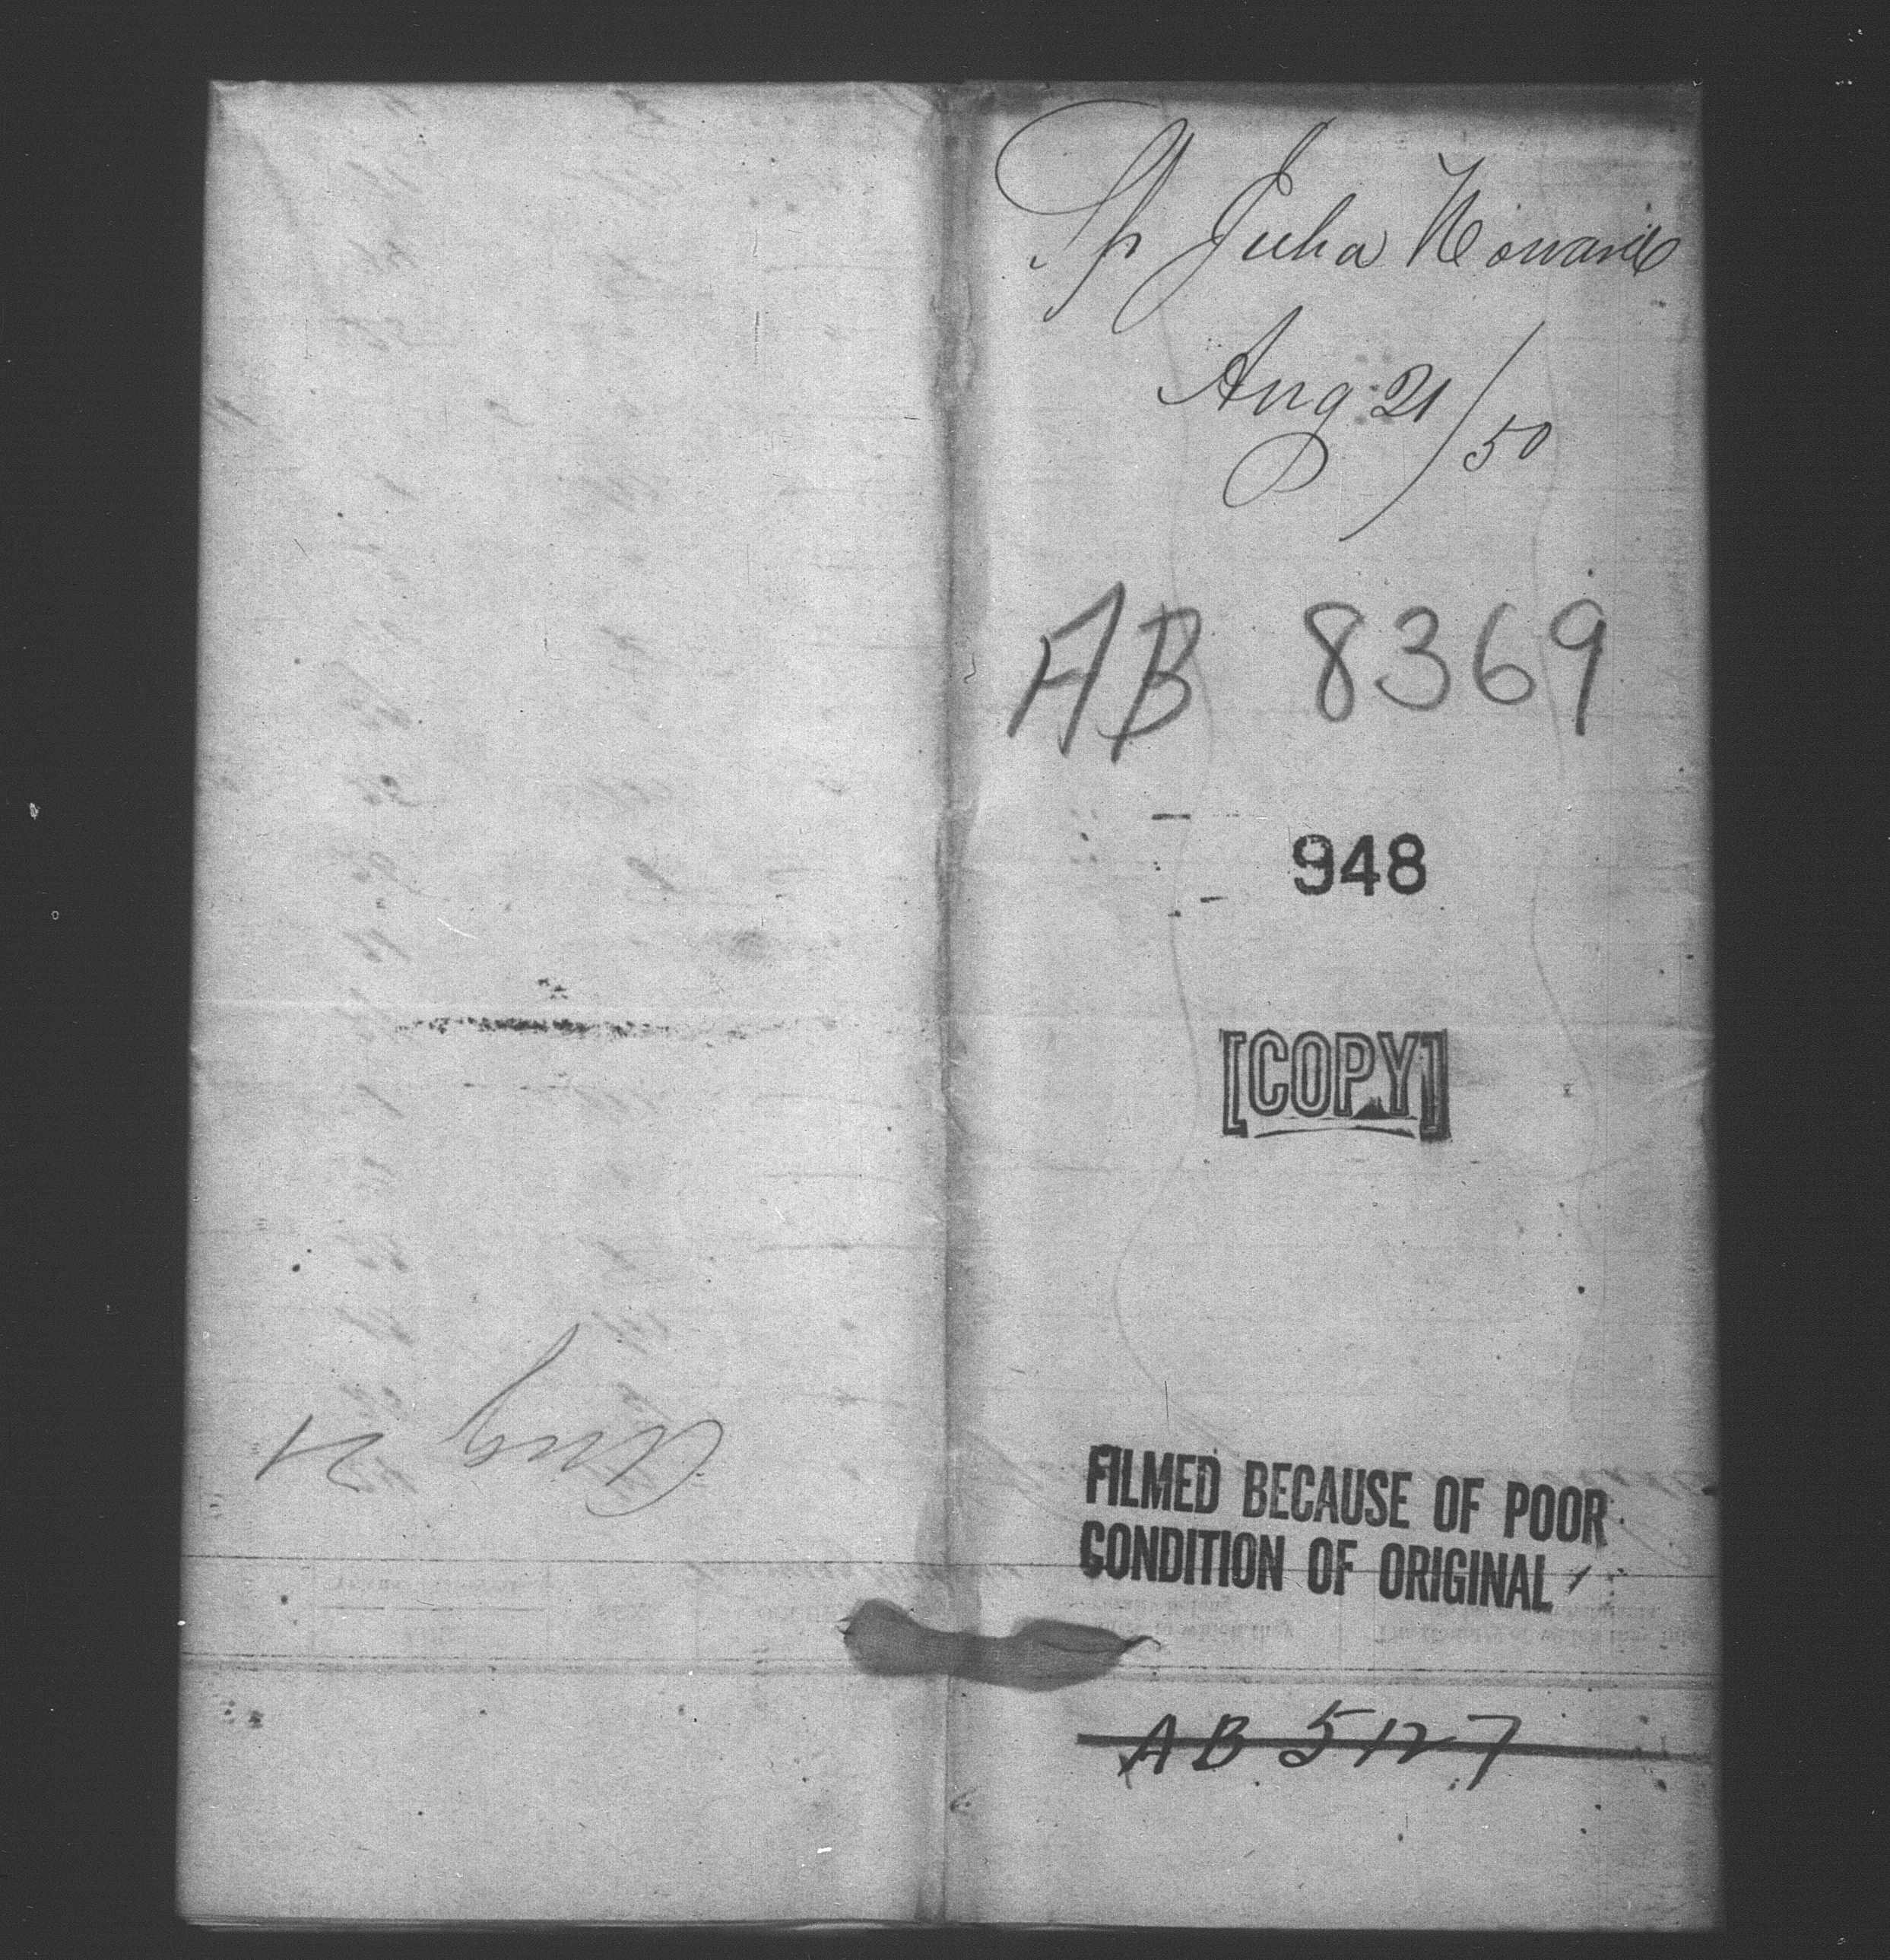 Sh Julia Howard
Aug 21/50
AB 8369
948
[COPY]
Aug 21
FILMED BECAUSE OF POOR
CONDITION OF ORIGINAL
AB 5127